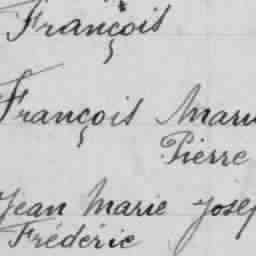 François
François Marie
Pierre
Jean Marie Josep
Frédéric